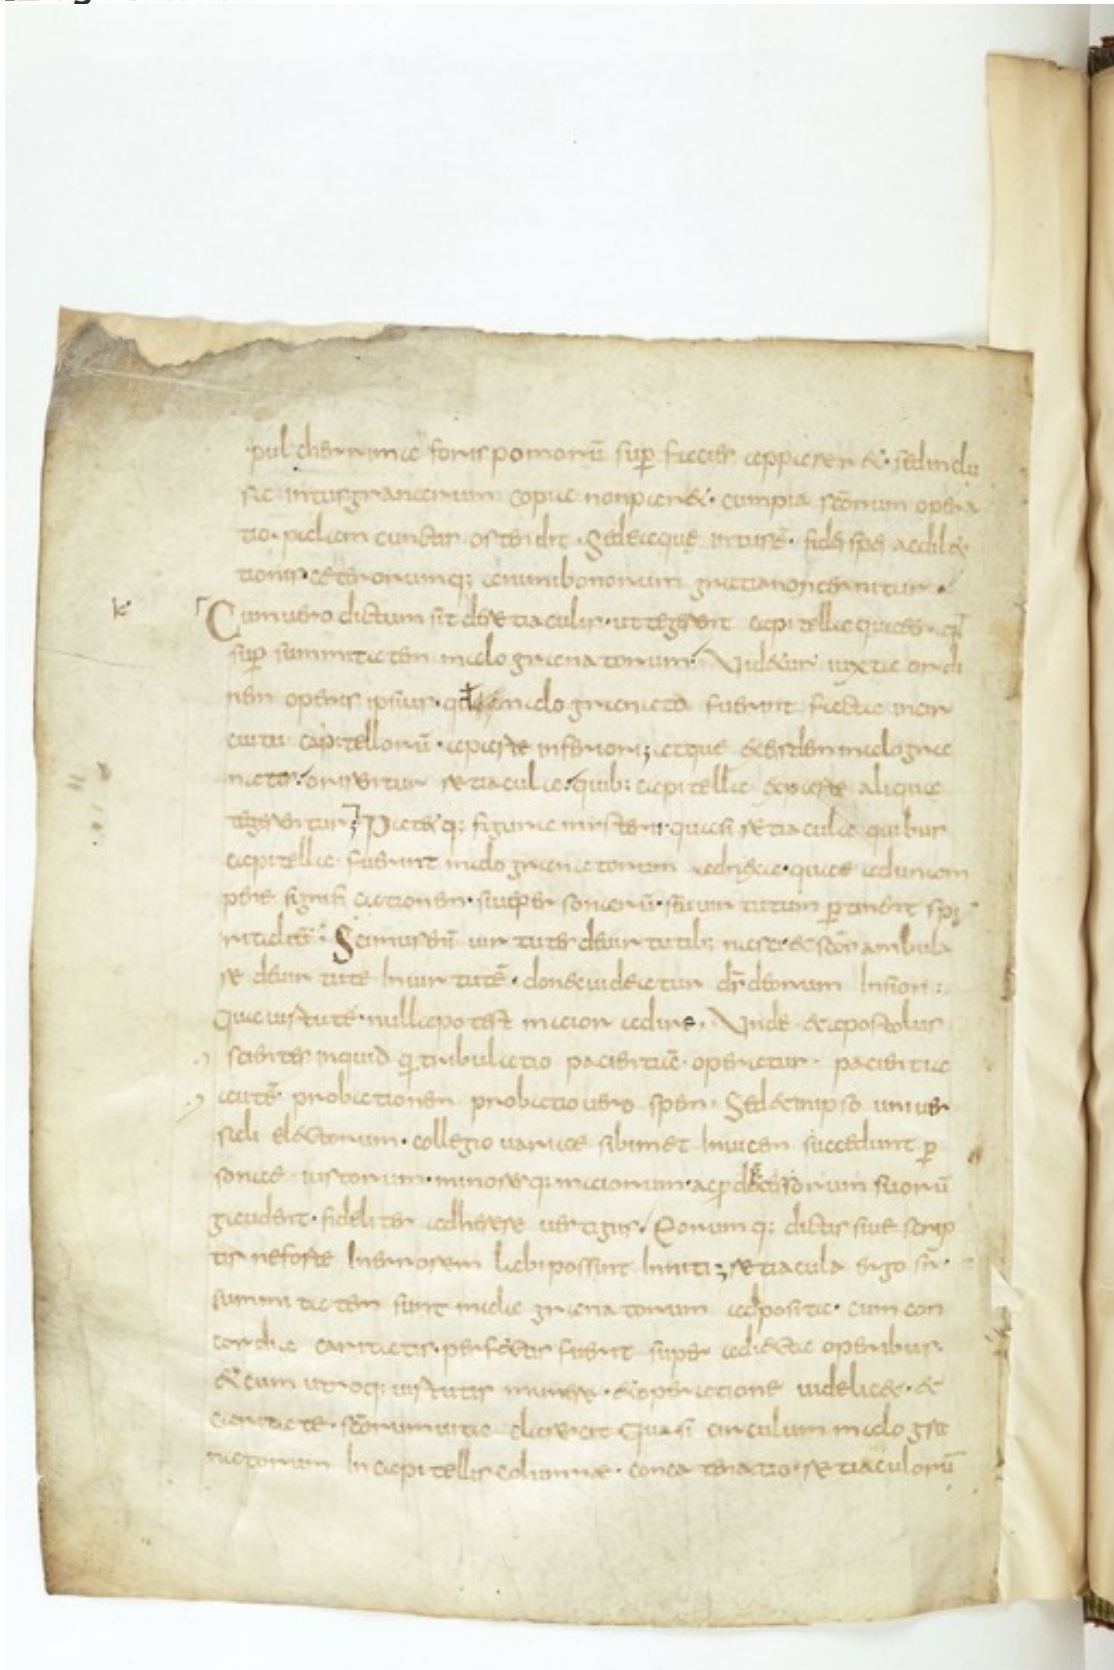 pulcherrima foris pomorū sup̄ facies apparer &. sed inclu
sa intus granorum copia non par&. cum pia sc̄orum opera
tio. palam cunctis ostendit. Sed eaque intus ē. fidei spei ac dilec
tionis. ceterorumq; animi bonorum gratia non cernitur.
k Cum vero dictum sit de retiaculis. ut tegerent capitella quae er
sup̄ summitatem malogranatorum. Videtur iuxta ordi
nem operis ipsius. malogranata fuerint facta in cir
cuitu capitellorū. a parte inferiori; atque ex eisdem malogra
natis. orirentur retiacula. quib; capitella ex parte aliqua
tegerentur; Patet q; figura misterii. quasi retiacula quibus
capitella fuerint malogranatorum adnexa. quae ad unam
pene significationem. siue personarū. siue uirtutum p̄tinent spi
ritalem. Scimus eni uirtutes de uirtutib; nasci. & sc̄os ambula
re de uirtute In uirtutē. donec uideatur d̄s deorum In sion:
Qua uirtute. nulla potest maior adire. Vnde & apostolus
scientes inquid q tribulatio pacientiā operatur. pacientia
autē probationem probatio uero spem. Sed & in ipso uniuer
sali electorum. collegio uariae sibimet Inuicem succedunt p̄
sonae iustorum. minoresq; maiorum. ac p̄decessorum suorū
gaudent. fideliter adherere uestigiis. Eorumq; dictis siue scrip
tis ne forte In errorem labi possint Inniti; retiacula ergo sup̄.
summitatem sunt malagranatorum adposita. cum con
cordia caritatis. perfectis fuerit super adiecta operibus.
& cum utroq; uirtutis munere. & operatione uidelic&. &
caritate. sc̄orum uita claruerit Quasi circulum malogra
natorum In capitellis columnae. concatenatio. retiaculorū